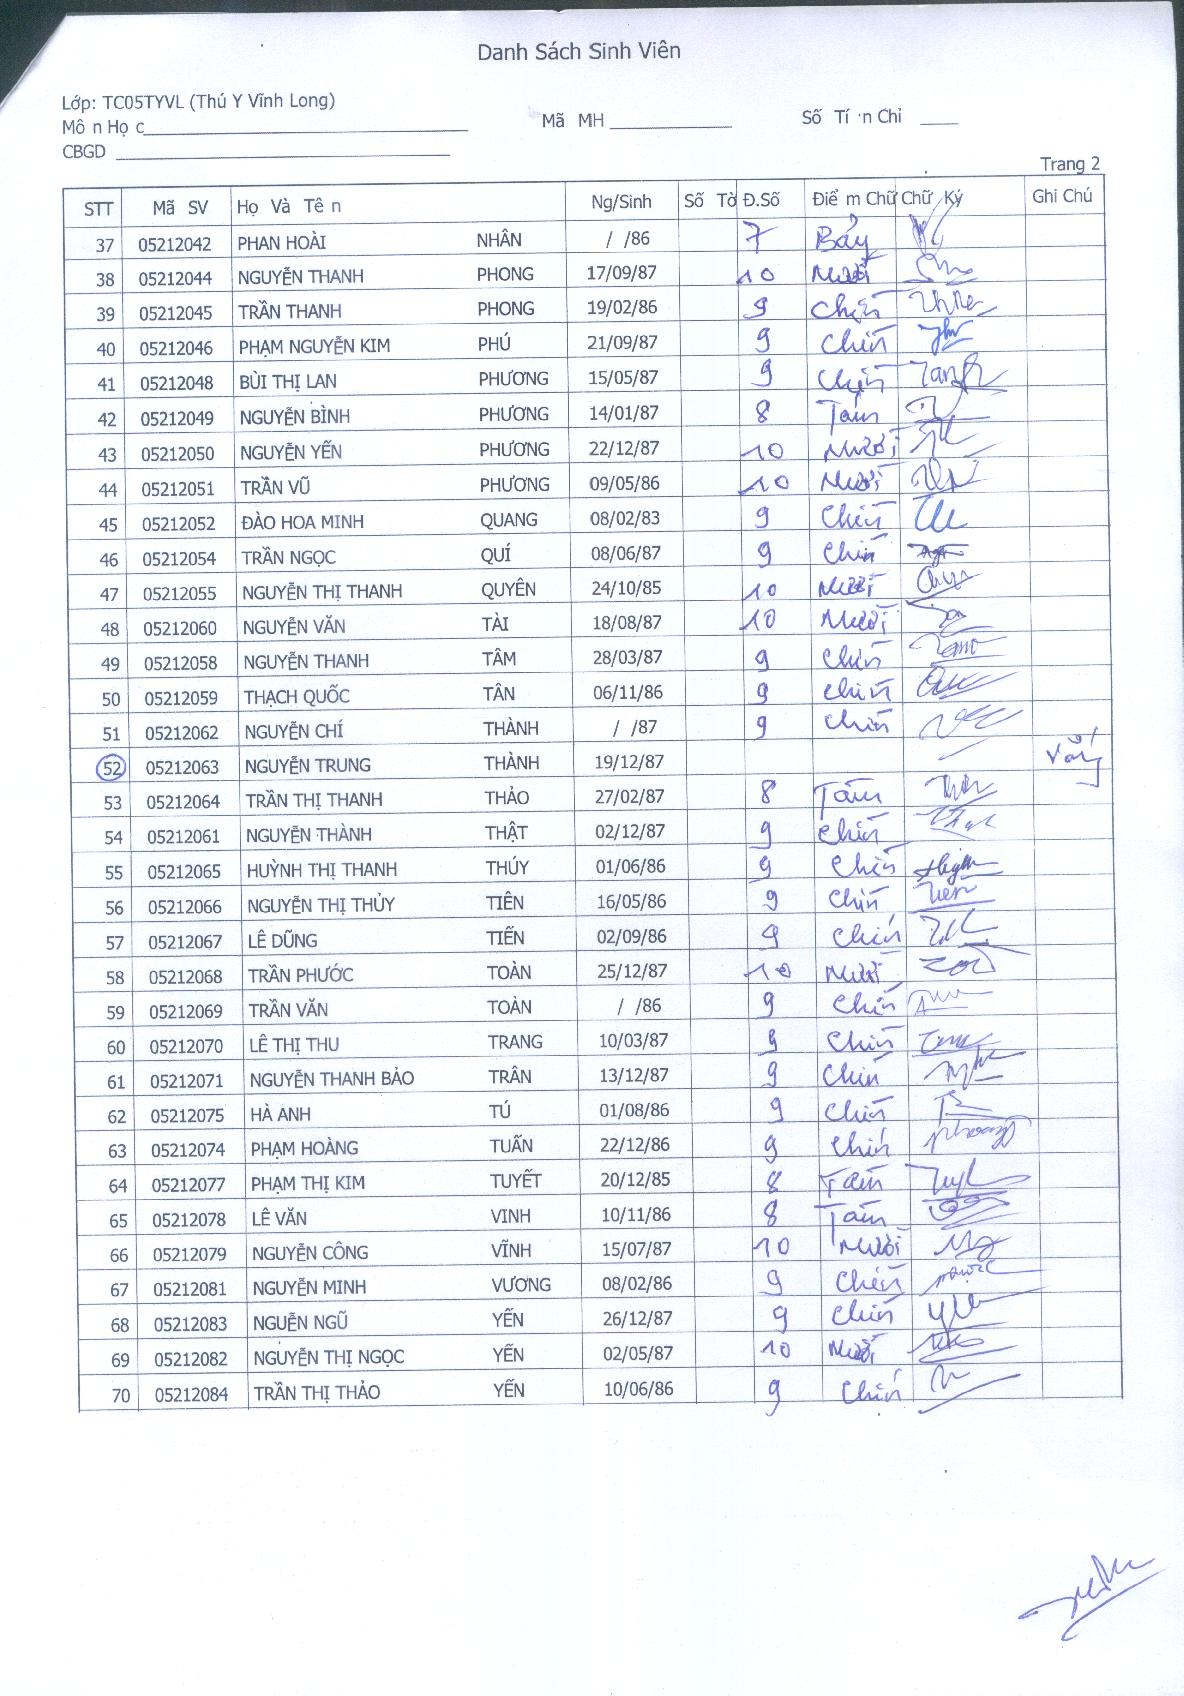 Danh Sách Sinh Viên
Lớp: TC05TYVL (Thú Y Vĩnh Long)
Mô n Họ c Mã MH Số Tí n Chỉ
CBGD
Trang 2
STT Mã SV Họ Và Tê n Ng/Sinh Số Tờ Đ.Số Điể m Chữ Chữ Ký Ghi Chú
37 05212042 PHAN HOÀI NHÂN / /86 7 Bảy
38 05212044 NGUYỄN THANH PHONG 17/09/87 10 Mười
39 05212045 TRẦN THANH PHONG 19/02/86 9 Chín
40 05212046 PHẠM NGUYỄN KIM PHÚ 21/09/87 9 Chín
41 05212048 BÙI THỊ LAN PHƯƠNG 15/05/87 9 Chín
42 05212049 NGUYỄN BÌNH PHƯƠNG 14/01/87 8 Tám
43 05212050 NGUYỄN YẾN PHƯƠNG 22/12/87 10 Mười
44 05212051 TRẦN VŨ PHƯƠNG 09/05/86 10 Mười
45 05212052 ĐÀO HOA MINH QUANG 08/02/83 9 Chín
46 05212054 TRẦN NGỌC QUÍ 08/06/87 9 Chín
47 05212055 NGUYỄN THỊ THANH QUYÊN 24/10/85 10 Mười
48 05212060 NGUYỄN VĂN TÀI 18/08/87 10 Mười
49 05212058 NGUYỄN THANH TÂM 28/03/87 9 Chín
50 05212059 THẠCH QUỐC TÂN 06/11/86 9 Chín
51 05212062 NGUYỄN CHÍ THÀNH / /87 9 Chín
52 05212063 NGUYỄN TRUNG THÀNH 19/12/87 Vắng
53 05212064 TRẦN THỊ THANH THẢO 27/02/87 8 Tám
54 05212061 NGUYỄN THÀNH THẬT 02/12/87 9 Chín
55 05212065 HUỲNH THỊ THANH THÚY 01/06/86 9 Chín
56 05212066 NGUYỄN THỊ THỦY TIÊN 16/05/86 9 Chín
57 05212067 LÊ DŨNG TIẾN 02/09/86 9 Chín
58 05212068 TRẦN PHƯỚC TOÀN 25/12/87 10 Mười
59 05212069 TRẦN VĂN TOÀN / /86 9 Chín
60 05212070 LÊ THỊ THU TRANG 10/03/87 9 Chín
61 05212071 NGUYỄN THANH BẢO TRÂN 13/12/87 9 Chín
62 05212075 HÀ ANH TÚ 01/08/86 9 Chín
63 05212074 PHẠM HOÀNG TUẤN 22/12/86 9 Chín
64 05212077 PHẠM THỊ KIM TUYẾT 20/12/85 8 Tám
65 05212078 LÊ VĂN VINH 10/11/86 8 Tám
66 05212079 NGUYỄN CÔNG VĨNH 15/07/87 10 Mười
67 05212081 NGUYỄN MINH VƯƠNG 08/02/86 9 Chín
68 05212083 NGUỄN NGŨ YẾN 26/12/87 9 Chín
69 05212082 NGUYỄN THỊ NGỌC YẾN 02/05/87 10 Mười
70 05212084 TRẦN THỊ THẢO YẾN 10/06/86 9 Chín